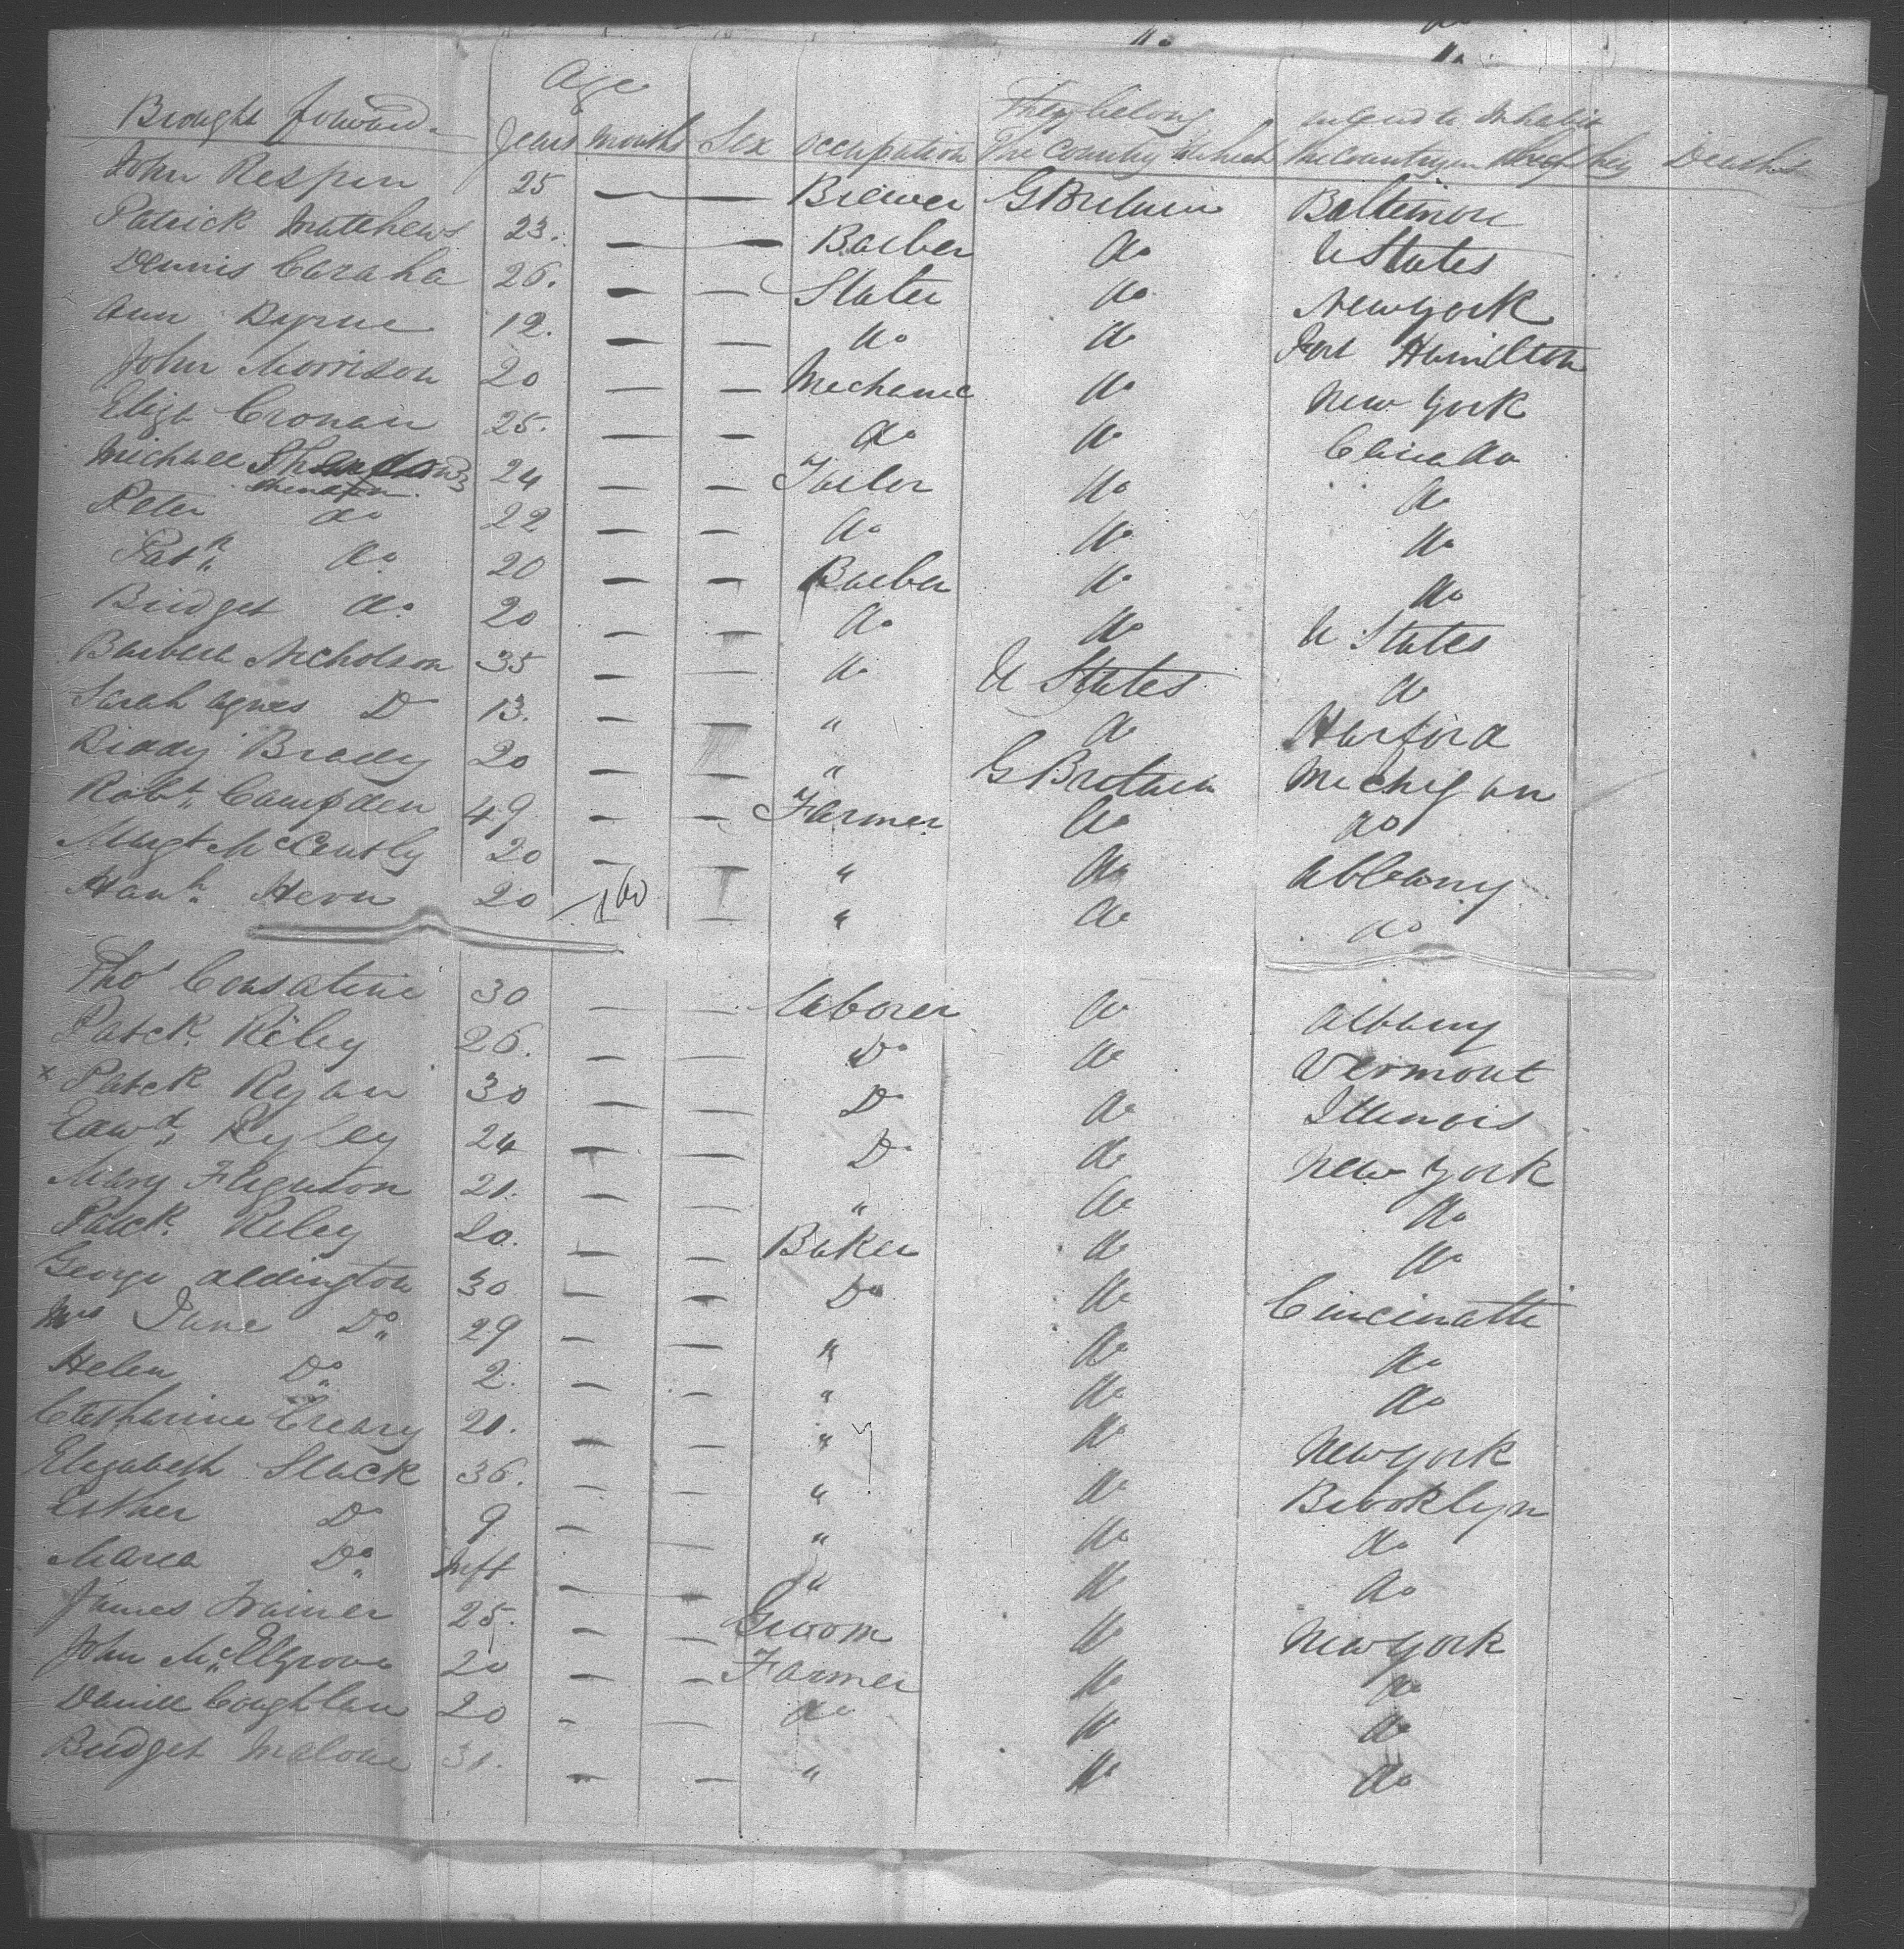 Age They belong intend to Inhabit
Brought forward Years Months Sex Occupation The Country to which the Country in which they Deaths
John Respin 25 — — Brewer G Britain Baltimore
Patrick Matthews 23. — — Barber do U States
Dennis Caraha 26. — — Slater do New york
Ann Byrne 12. — — do do Fort Hamilton
John Morrison 20 — — Mechanic do New York
Eliza Cronan 25. — — do do
Michael 24 — — Tailor do do
Peter do 22 — — do do do
Patk do 20 — — Barber do do
Bridget do 20 — — do do U States
Barbera Nicholson 35 — — do U States do
Sarah Agnes D 13. — — " do Harford
Biddy Brady 20 — — " G Britain Michigan
Robt. Campden 49 — — Farmer do do
Margt 20 — — " do Albany
Hanh. Hern 20 160 — " do do
Thos Consatine 30 — — laborer do Albany
Patck Riley 26. — — Do do Vermont
x Patck Ryan 30 — — Do do Illinois
Edwd. Ryley 24 — — Do do New York
Mary Ferguson 21. — — " do do
Patck. Riley 20. — — Baker do do
George Aldington 30 — — Do do Cincinatti
Mrs Jane Do 29 — — " do do
Helen Do 2. — — " do do
Catharine Creary 21. — — " do New york
Elizabeth Slack 36. — — " do Brooklyn
Esther Do 9 — — " do do
Maria Do Inft — — " do do
James Trainer 25. — — Groom do New york
John McElgrove 20 — — Farmer do do
Daniel Coughlan 20 — — do do do
Bridget Malone 31. — — " do do